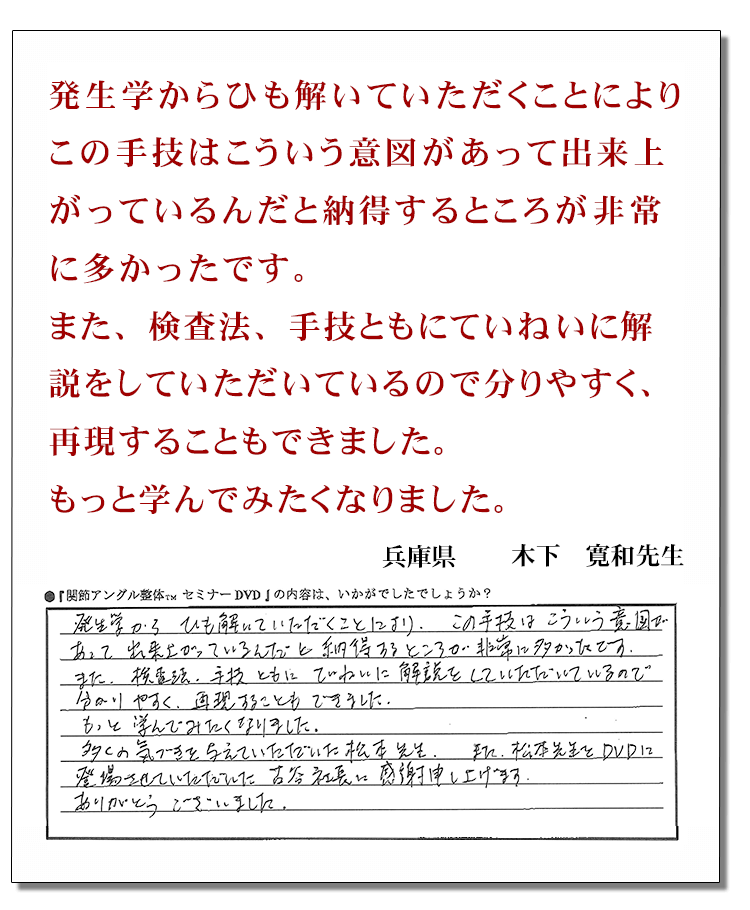 発生学からひも解いていただくことにより
この手技はこういう意図があって出来上
がっているんだと納得するところが非常
に多かったです。
また、検査法、手技ともにていねいに解
説をしていただいているので分りやすく、
再現することもできました。
もっと学んでみたくなりました。
兵庫県　木下　寛和先生
●『関節アングル整体™ セミナーDVD』の内容は、いかがでしたでしょうか？
発生学から ひも解いていただくことにより、この手技は こういう意図が
あって 出来上がっているんだと 納得するところが 非常に多かったです。
また、検査法、手技 ともに ていねいに 解説をしていただいているので
分かりやすく、再現することも できました。
もっと 学んでみたくなりました。
多くの気づきを与えていただいた 松本先生、また、松本先生をDVDに
登場させていただいた 古谷社長に 感謝申し上げます。
ありがとう ございました。